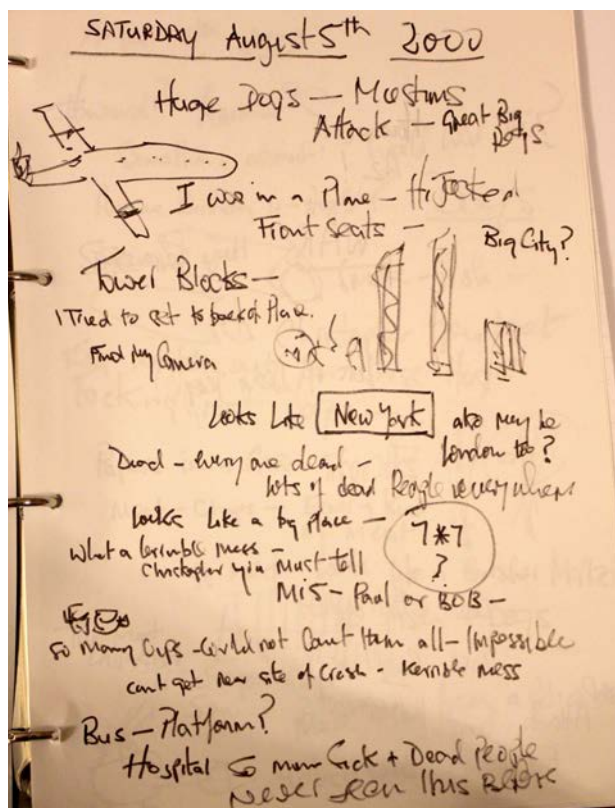 SATURDAY August 5th 2000
Huge Dogs — Mustims
Attack — Great Big
Dogs
I was in a Plane — HiJacked
Front Seats —
Big City?
Tower Blocks —
I Tried to get to back of Plane.
Find my Camera
Looks Like New York also may be
London too?
Dead — every one dead —
lots of dead People everywhere
Looks Like a big place —
7*7
?
What a terrible mess —
Christopher you must tell
Mi5 — Paul or BOB —
So Many Cups — Could not Count them all — Impossible
cant get near site of Crash - terrible mess
Bus — Platform?
Hospital So many Sick + Dead People
Never Seen This Before